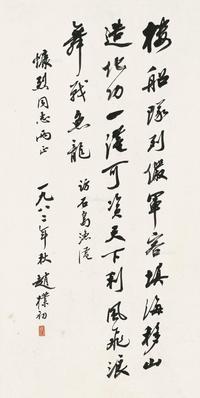 楼船队到俨军容填海移山
造化功一港可资天下利风飞浪
舞战鱼龙
访石岛渔港
慷烈同志两正
一九八二年秋赵朴初